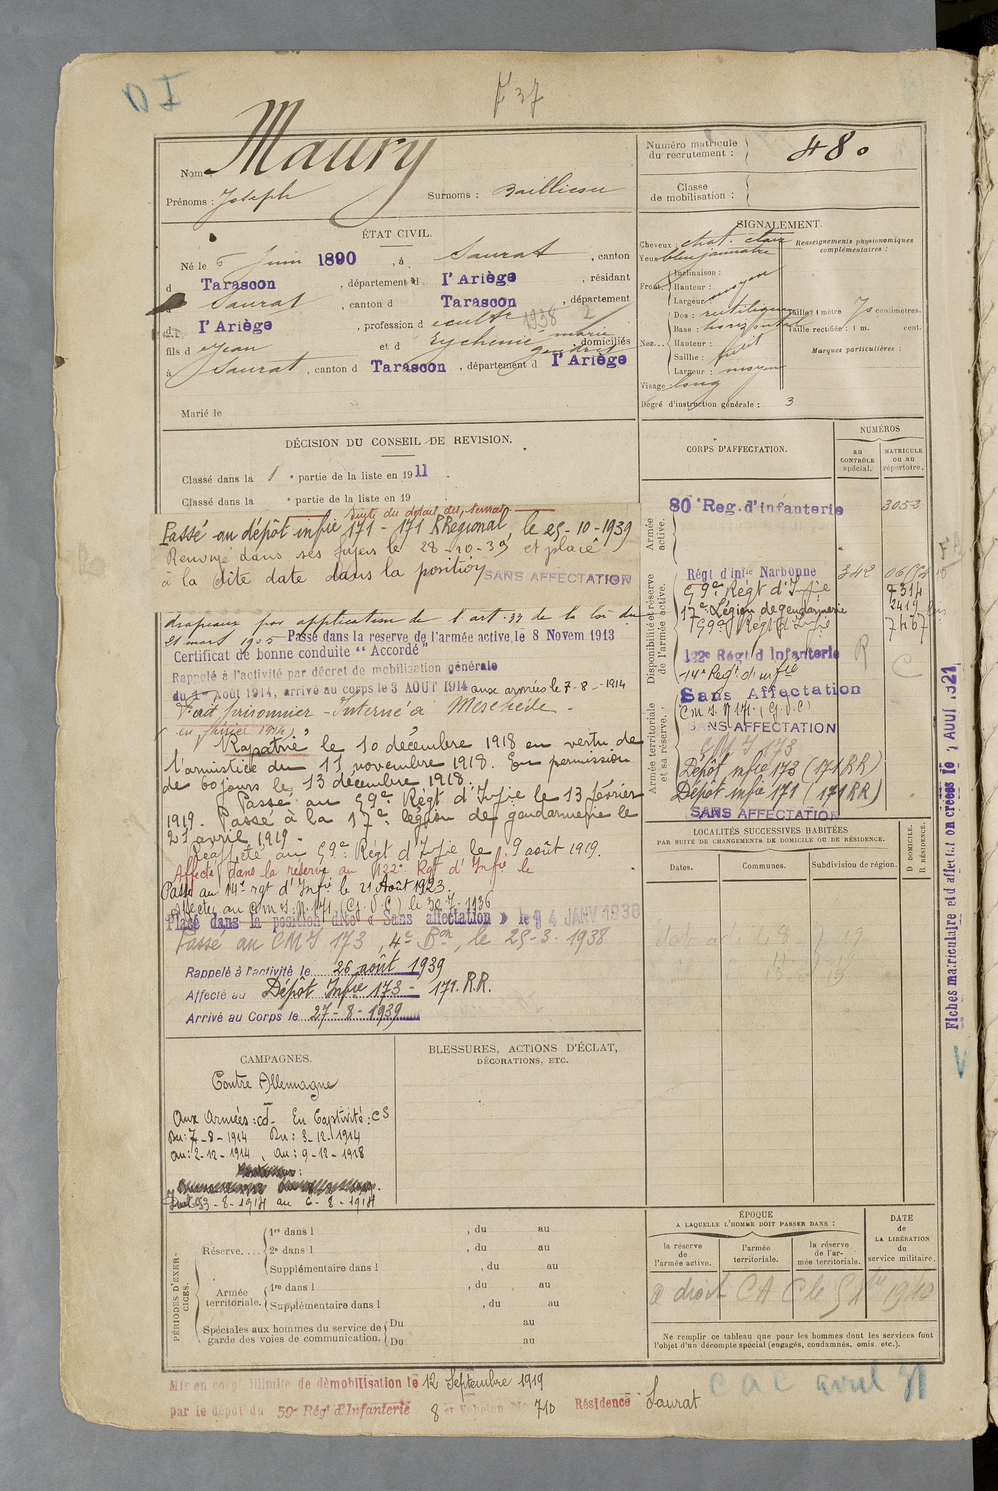 D I
F 37
Nom Maury
Prénoms : Joseph Surnoms :
Numéro matricule du recrutement : 480
Classe de mobilisation :
ÉTAT CIVIL.
Né le 6 Juin 1890, à Saurat, canton
d Tarascon, département d l'Ariège, résidant
à Saurat, canton d Tarascon, département
d l'Ariège, profession d cultr 1938
fils d Jean et d Eychenne marie, domiciliés
à Saurat, canton d Tarascon, département d l'Ariège
Marié le
SIGNALEMENT.
Cheveux : chat. clair
Yeux bleu jaunâtre
Renseignements physionomiques complémentaires :
Front Inclinaison :
Hauteur :
Largeur : moyen
Nez... Dos : rectiligne
Base : horizontal
Hauteur :
Saillie : petit
Largeur : moyen
Visage : long
Taille : 1 mètre 70 centimètres.
Taille rectifiée : 1 m. cent.
Marques particulières :
Degré d'instruction générale : 3
DÉCISION DU CONSEIL DE REVISION.
Classé dans la 1 e partie de la liste en 1911
Classé dans la e partie de la liste en 19
suite du détail des services
Passé au dépôt infie 171 - 171 R Régional, le 25-10-1939
Renvoyé dans ses foyers le 28-10-39 et placé
à la dite date dans la position SANS AFFECTATION
drapeaux par application de l'art. 33 de la loi du
21 mars 1905 Passé dans la réserve de l'armée active, le 8 Novem 1913
Certificat de bonne conduite "Accordé"
Rappelé à l'activité par décret de mobilisation générale
du 1er Août 1914, arrivé au corps le 3 AOUT 1914 aux armées le 7-8-1914
Fait prisonnier - Interné à Meschede -
Rapatrié le 10 décembre 1918 en vertu de
l'armistice du 11 novembre 1918. En permission
de 60 jours le 13 décembre 1918.
Passé au 59e Régt d'Infie le 13 février
1919. Passé à la 17e légion de gendarmerie le
21 avril 1919 -
Réaffecté au 59e Régt d'Infie le 9 août 1919.
Affecté dans la réserve au 122e Rgt d'Infie le
Passé au 14e rgt d'Infie le 21 Août 1923.
Affecté au C.m.s. N. 171 (G.V.C) le 30.7.1936
Placé dans la position dite « Sans affectation » le 14 JANV 1938
Passé au CMI 173, 4e Bon, le 25-3-1938
Rappelé à l'activité le 26 août 1939
Affecté au Dépôt Infie 173 - 171. R.R.
Arrivé au Corps le 27-8-1939
CORPS D'AFFECTATION.
NUMÉROS
au CONTRÔLE spécial.
MATRICULE ou au répertoire.
Armée active.
80e Reg. d'infanterie 3053
Disponibilité et réserve de l'armée active.
Régt d'infie Narbonne 342
59e Régt d'Infie 7314
17e Légion de gendarmerie 2419
59e Régt d'Infie 7467
122e Régt d'Infanterie R
14e Regt d'infie C
Sans Affectation
Armée territoriale et sa réserve.
C m s. N 171 (G.V.C)
SANS AFFECTATION
CMI 173
Dépôt infie 173 (171 RR)
Dépôt infie 171 (171 RR)
SANS AFFECTATION
LOCALITÉS SUCCESSIVES HABITÉES
PAR SUITE DE CHANGEMENTS DE DOMICILE OU DE RÉSIDENCE.
Dates. Communes. Subdivision de région.
D DOMICILE. R RÉSIDENCE.
CAMPAGNES.
Contre Allemagne
Aux Armées : cd - En Captivité : CS
Du : 7-8-1914 Du : 3-12-1914
au : 2-12-1914, au : 9-12-1918
3-8-1914 au 6-8-1914
BLESSURES, ACTIONS D'ÉCLAT,
DÉCORATIONS, ETC.
PÉRIODES D'EXERCICES.
Réserve.... 1re dans l , du au
2e dans l , du au
Supplémentaire dans l , du au
Armée territoriale. 1re dans l , du au
Supplémentaire dans l , du au
Spéciales aux hommes du service de garde des voies de communication. Du au
Du au
ÉPOQUE
A LAQUELLE L'HOMME DOIT PASSER DANS :
la réserve de l'armée active.
l'armée territoriale.
la réserve de l'armée territoriale.
DATE DE LA LIBÉRATION du service militaire.
a droit CA C le 1940
Ne remplir ce tableau que pour les hommes dont les services font
l'objet d'un décompte spécial (engagés, condamnés, omis, etc.).
Mis en congé illimité de démobilisation le 12 Septembre 1919
par le dépôt du 59e Rég d'Infanterie 8 e Echelon No 710 Résidence Saurat
C A C avril
Fiches matriculaire et d'affectation créées le AOUT 1921
V